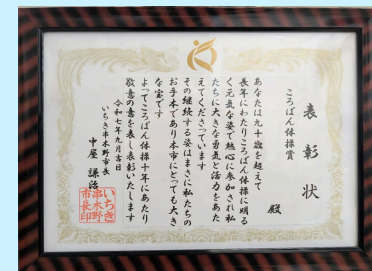 表彰状
ころばん体操賞
殿
あなたは九十歳を超えて
長年にわたりころばん体操に明る
く元気な姿で熱心に参加され私
たちに大きな勇気と活力をあた
えてくださっています
その継続する姿はまさに私たちの
お手本であり本市にとっても大き
な宝です
よってころばん体操十年にあたり
敬意の意を表し表彰いたします
令和七年九月吉日
いちき串木野市長
中屋謙治
いちき
串木野
市長印